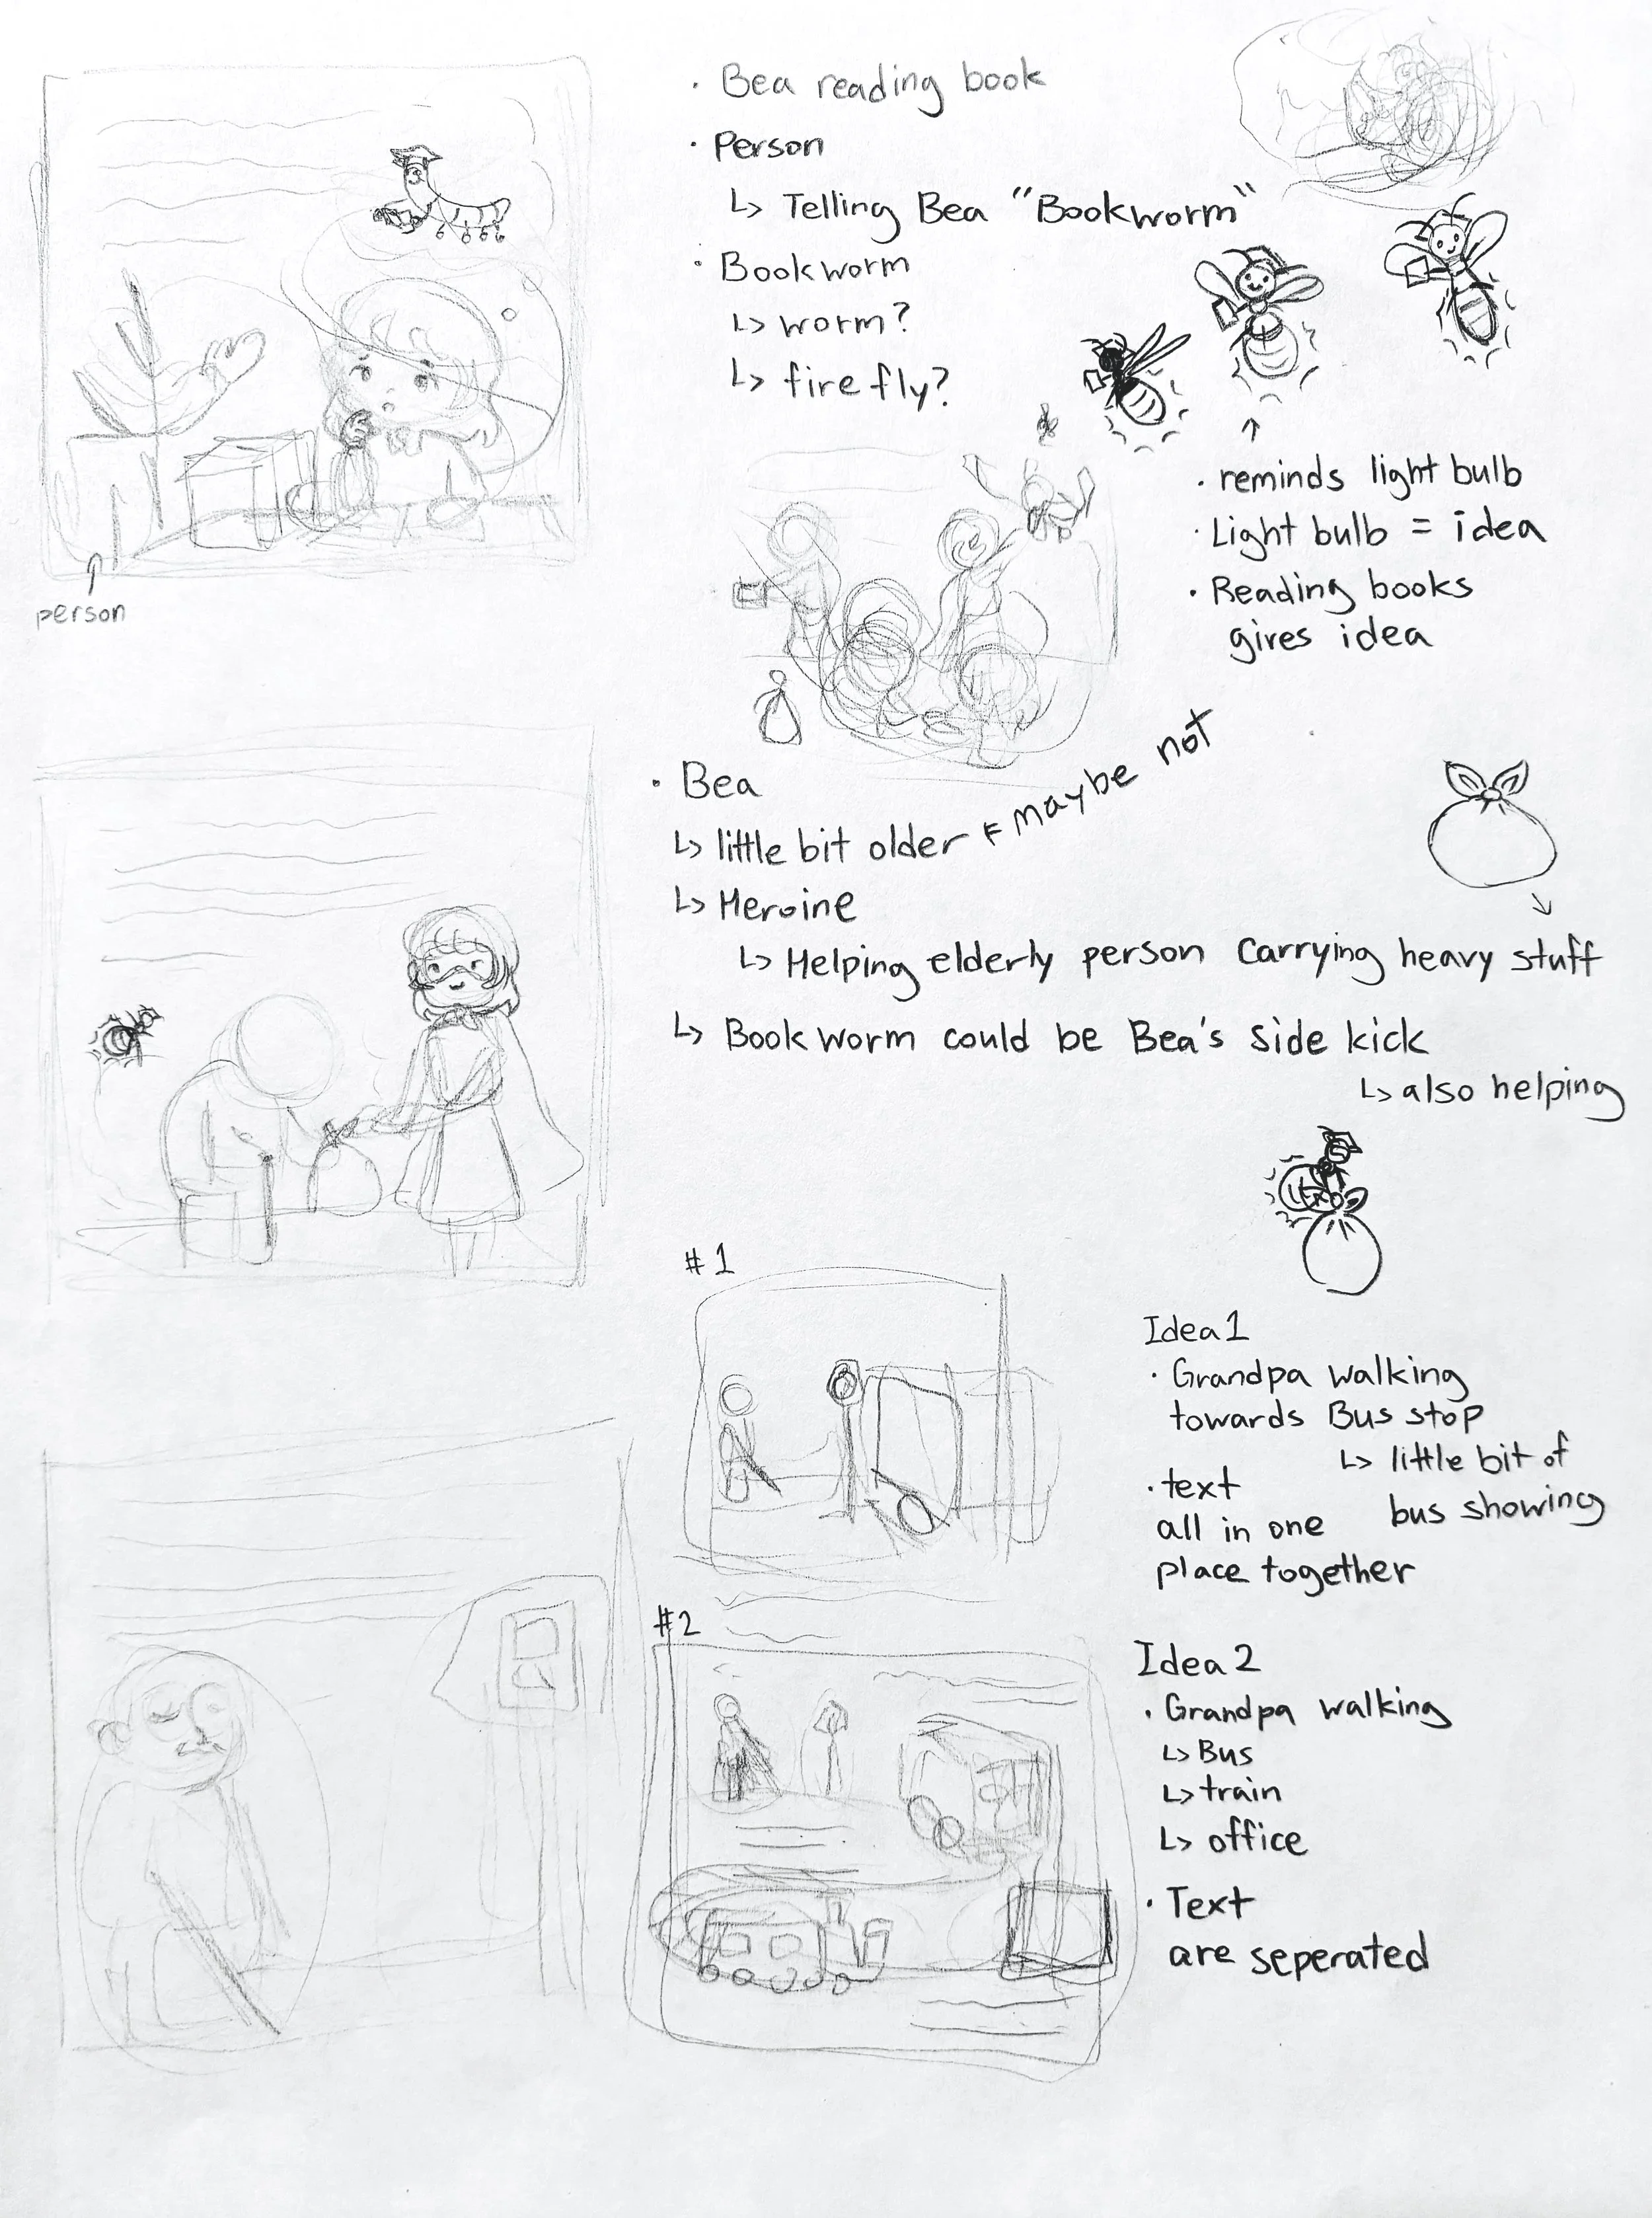 · Bea reading book
· Person
↳ Telling Bea "Bookworm"
· Bookworm
↳ worm?
↳ firefly?
↑
· reminds light bulb
· Light bulb = idea
· Reading books
gives idea
person
· Bea
↳ little bit older ← maybe not
↳ Heroine
↳ Helping elderly person Carrying heavy stuff
↳ Book worm could be Bea's side kick
↳ also helping
#1
Idea 1
· Grandpa walking
towards Bus stop
↳ little bit of
bus showing
· text
all in one
place together
#2
Idea 2
· Grandpa walking
↳ Bus
↳ train
↳ office
· Text
are seperated